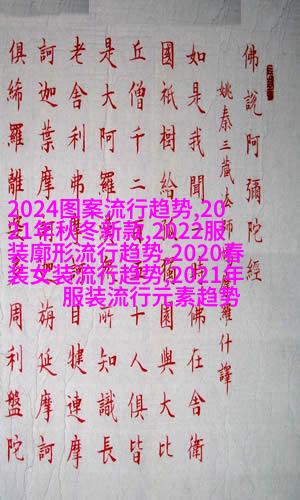 佛說阿彌陀經
姚秦三藏法師羅什譯
如是我聞佛在舍衛
國祇樹給獨園與大比
丘僧千二人俱皆
是大阿羅所知識長
老舍利弗目犍連摩
訶迦葉摩旃延摩訶
俱絺羅離周利盤陀
2024图案流行趋势,20
21年秋冬新款,2022服
装廓形流行趋势,2020春
装女装流行趋势,2021年
服装流行元素趋势